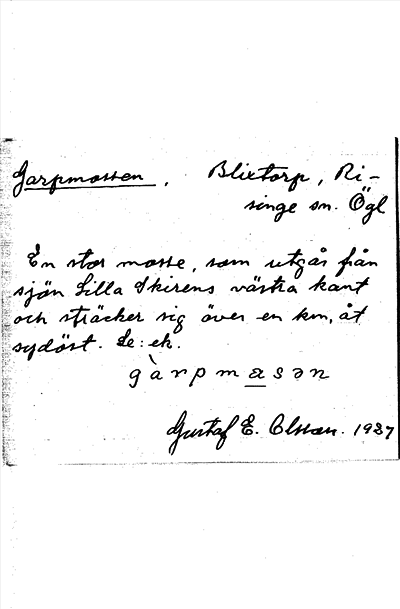 Garpmossen, Blixtorp, Ri-
singe sn. Ögl
En stor mosse, som utgår från
sjön Lilla Skirens västra kant
och sträcker sig över en km, åt
sydöst. Se: ek.
gàrpmasən
Gustaf E. Olsson. 1937